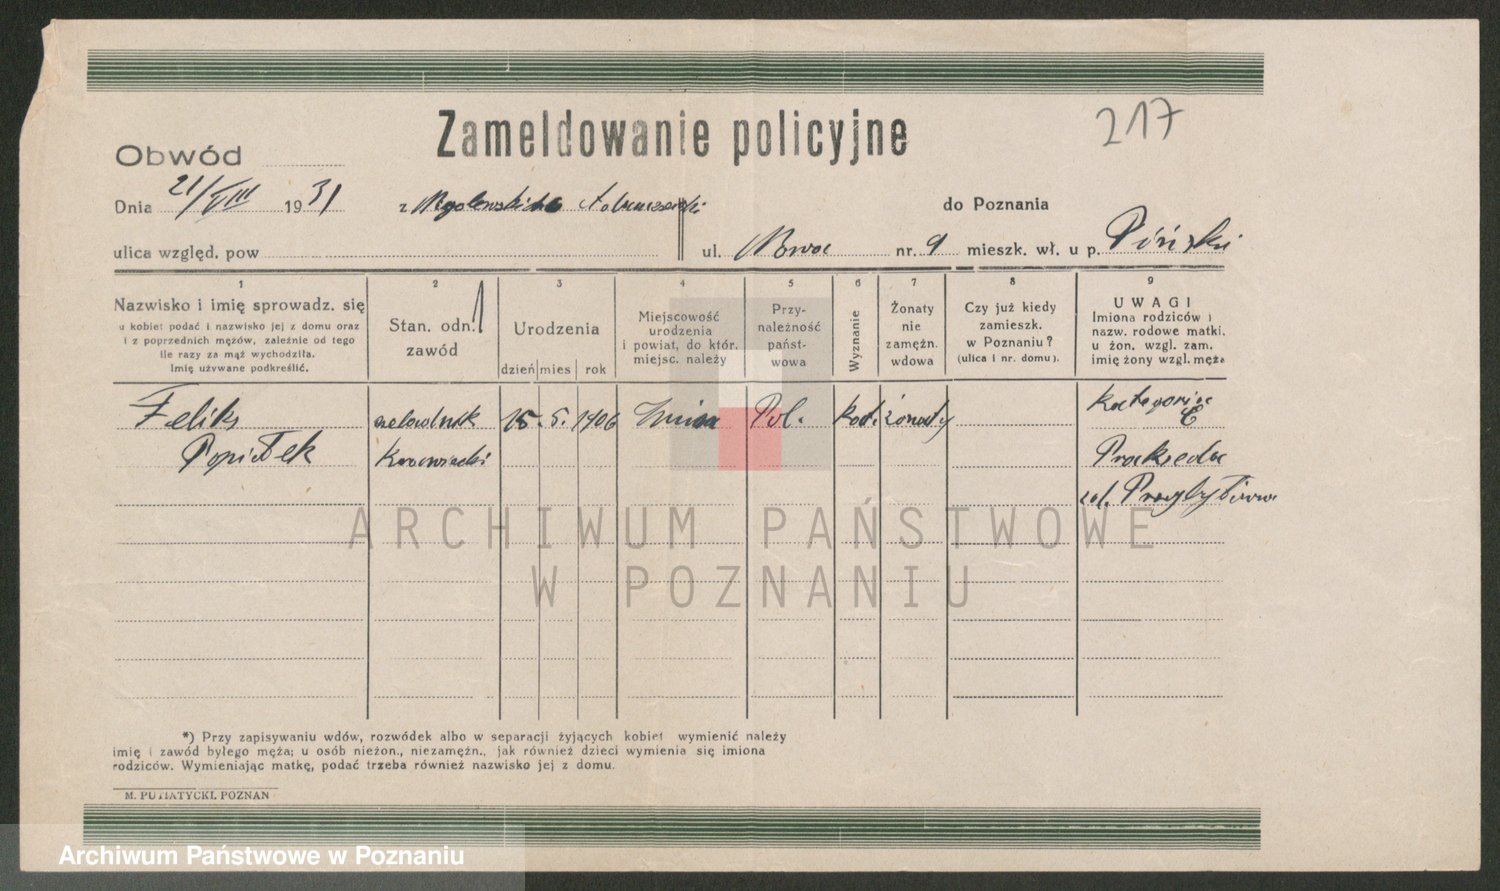 Zameldowanie policyjne
217
Obwód
Dnia 21/VIII 1931 z do Poznania
ulica względ. pow ul. nr. 9 mieszk. wł. u p.
1 2 3 4 5 6 7 8 9
Nazwisko i imię sprowadz. się
u kobiet podać i nazwisko jej z domu oraz
i z poprzednich mężów, zależnie od tego
ile razy za mąż wychodziła.
Imię używane podkreślić.
Stan. odn.
zawód
Urodzenia
dzień mies rok
Miejscowość
urodzenia
i powiat, do któr.
miejsc. należy
Przy-
należność
państ-
wowa
Wyznanie
Żonaty
nie
zamężn.
wdowa
Czy już kiedy
zamieszk.
w Poznaniu?
(ulica i nr. domu).
UWAGI
Imiona rodziców i
nazw. rodowe matki.
u żon. wzgl. zam.
imię żony wzgl. męża
Feliks 15. 5. 1906 Pol. kat. żonaty Kategorja
C
Popiołek Krawiecki Prakseda
ARCHIWUM PAŃSTWOWE
W POZNANIU
*) Przy zapisywaniu wdów, rozwódek albo w separacji żyjących kobiet wymienić należy
imię i zawód byłego męża; u osób nieżon., niezamężn., jak również dzieci wymienia się imiona
rodziców. Wymieniając matkę, podać trzeba również nazwisko jej z domu.
M. PUTIATYCKI. POZNAN
Archiwum Państwowe w Poznaniu